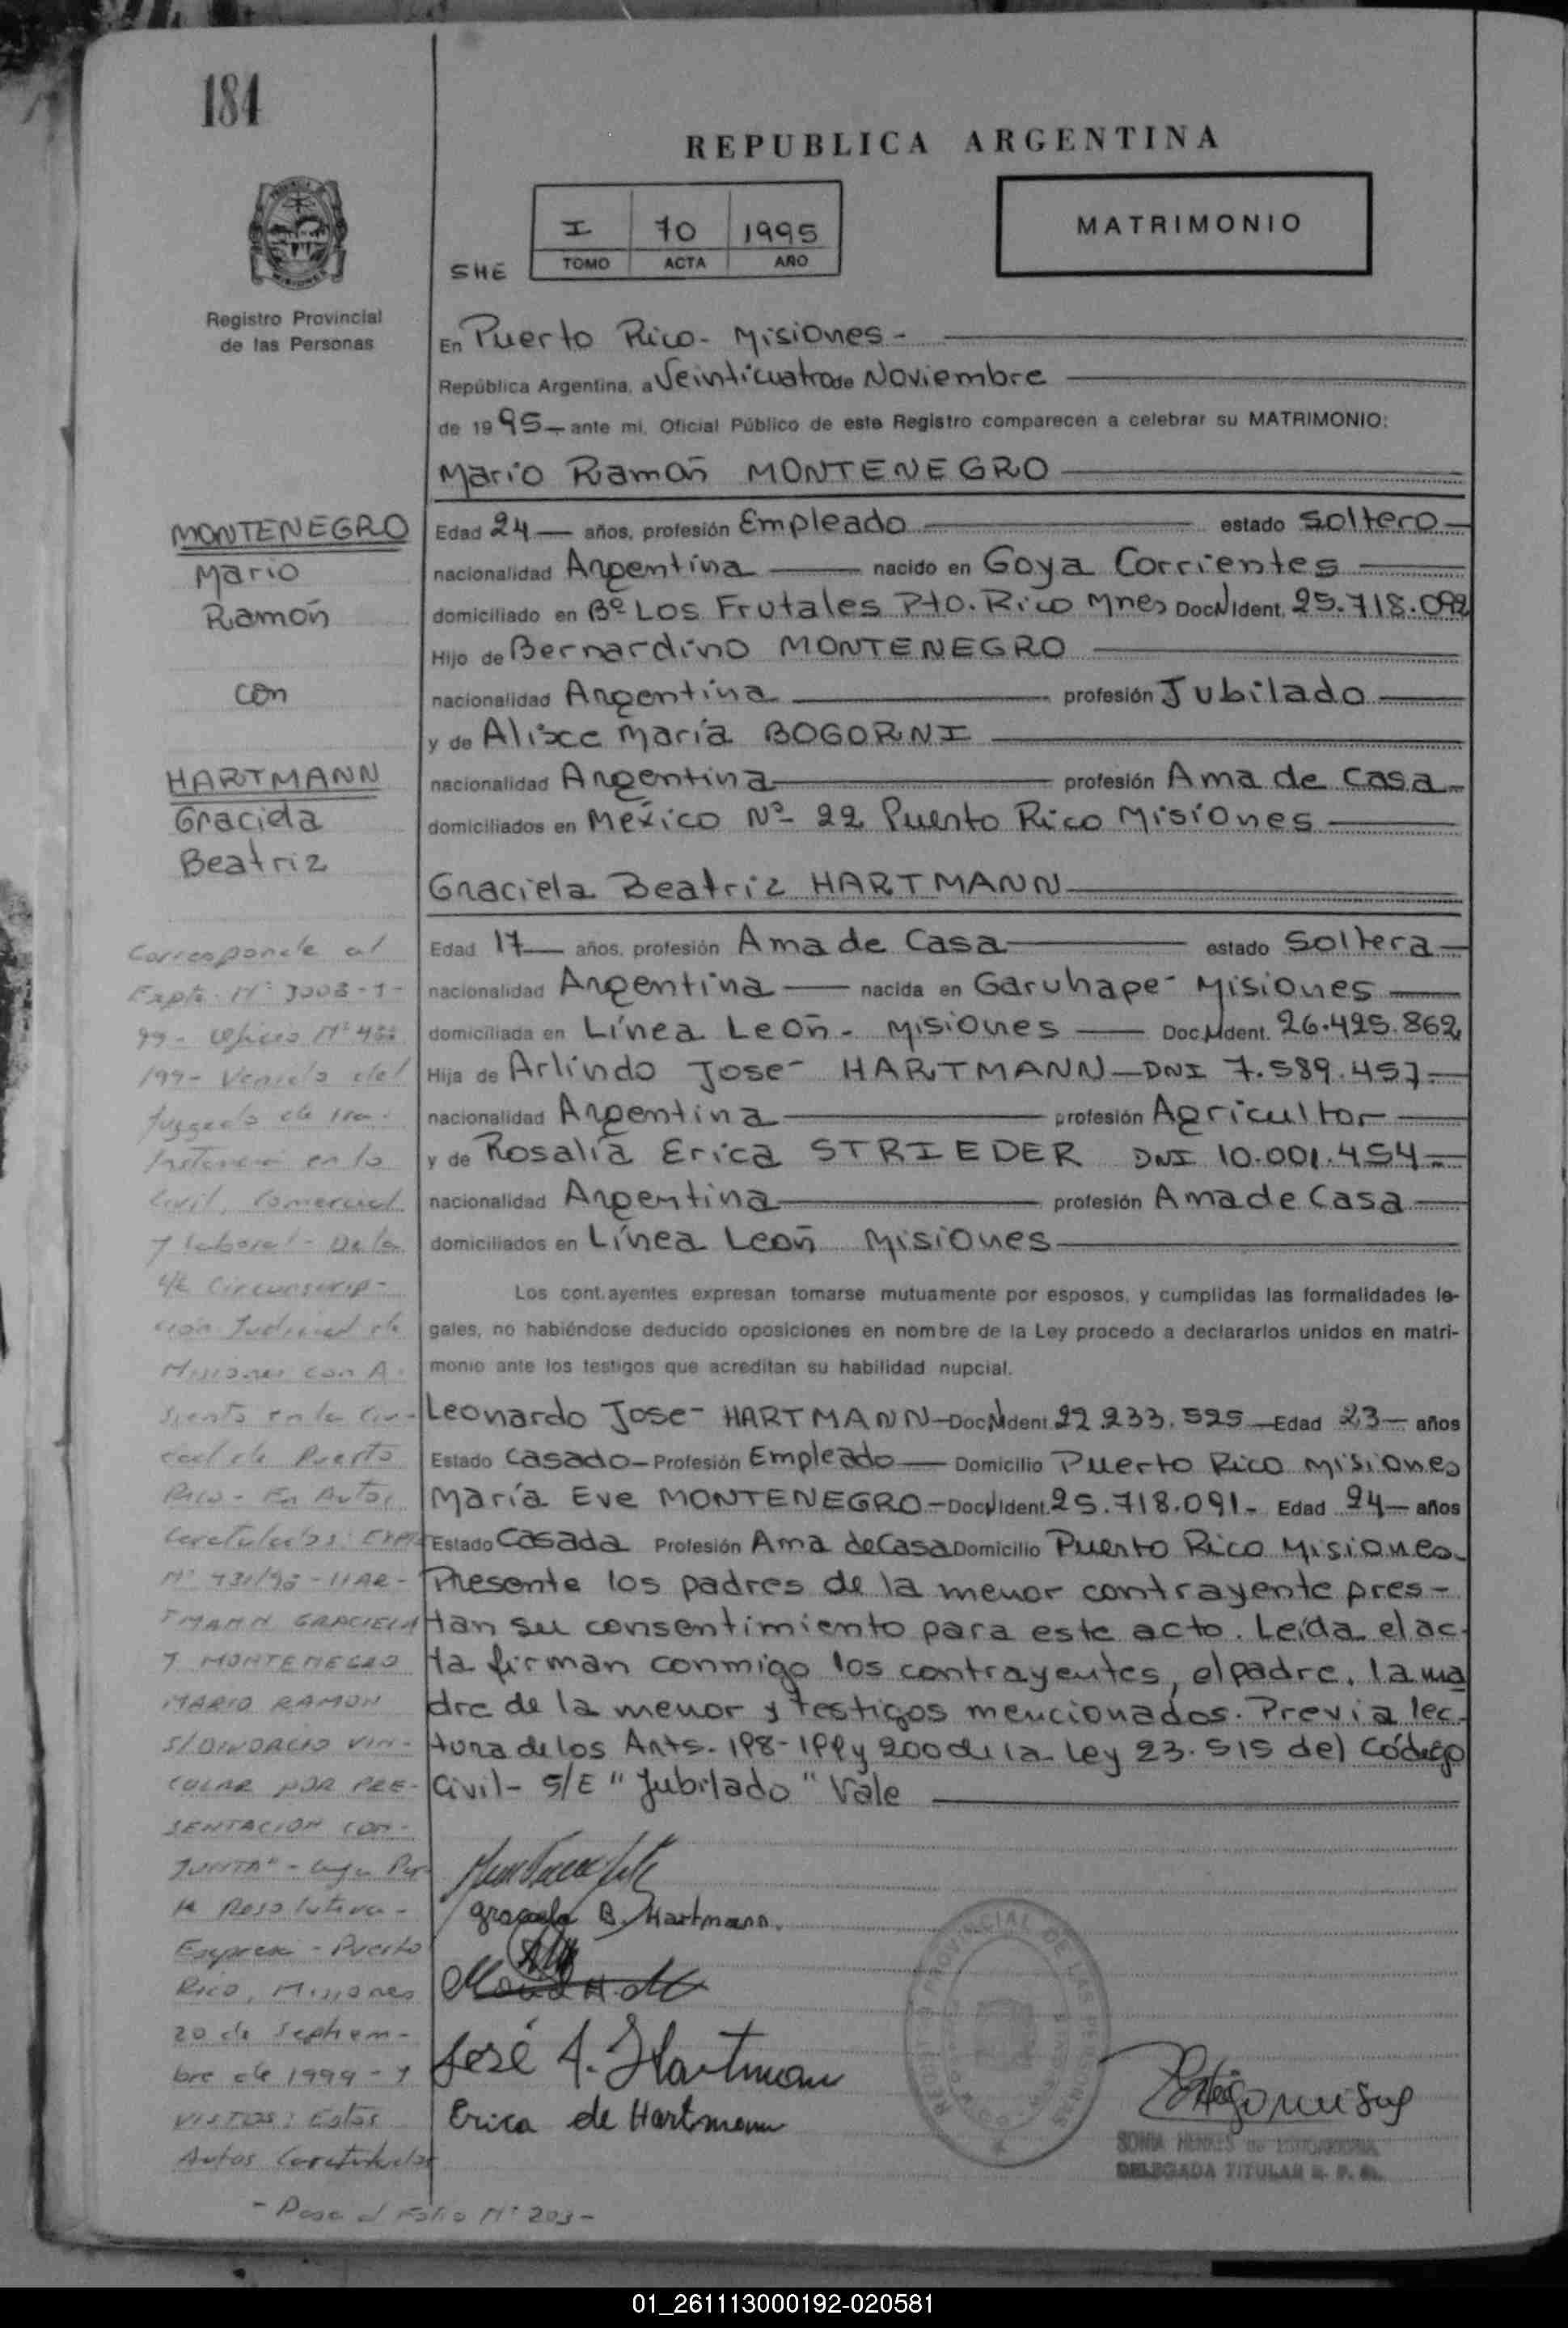 184
REPUBLICA ARGENTINA
I 70 1995
TOMO ACTA AÑO
SHE
MATRIMONIO
Registro Provincial
de las Personas
En Puerto Rico - Misiones -
República Argentina, a Veinticuatro de Noviembre
de 1995 - ante mi, Oficial Público de este Registro comparecen a celebrar su MATRIMONIO:
Mario Ramón MONTENEGRO
Edad 24 - años, profesión Empleado estado soltero
nacionalidad Argentina nacido en Goya Corrientes
domiciliado en Bº Los Frutales Pto. Rico Mnes Doc. N. Ident. 25.718.092
Hijo de Bernardino MONTENEGRO
nacionalidad Argentina profesión Jubilado
y de Alisce María BOGORNI
nacionalidad Argentina profesión Ama de Casa
domiciliados en México Nº 22 Puerto Rico Misiones
Graciela Beatriz HARTMANN
Edad 17 años, profesión Ama de Casa estado Soltera
nacionalidad Argentina nacida en Garuhape - Misiones
domiciliada en Línea León - Misiones Doc. N. Ident. 26.425.862
Hija de Arlindo José HARTMANN - DNI 7.589.457
nacionalidad Argentina profesión Agricultor
y de Rosalía Erica STRIEDER DNI 10.001.454
nacionalidad Argentina profesión Ama de Casa
domiciliados en Línea León Misiones
Los cont.ayentes expresan tomarse mutuamente por esposos, y cumplidas las formalidades le-
gales, no habiéndose deducido oposiciones en nombre de la Ley procedo a declararlos unidos en matri-
monio ante los testigos que acreditan su habilidad nupcial.
Leonardo José HARTMANN - Doc. N. Ident. 22.233.525 - Edad 23 - años
Estado Casado - Profesión Empleado - Domicilio Puerto Rico Misiones
María Eve MONTENEGRO - Doc. N. Ident. 25.718.091 - Edad 24 - años
Estado Casada Profesión Ama de Casa Domicilio Puerto Rico Misiones.
Presente los padres de la menor contrayente pres-
tan su consentimiento para este acto. Leída el ac-
ta firman conmigo los contrayentes, el padre, la ma
dre de la menor y testigos mencionados. Previa lec-
tura de los Arts. 198-199 y 200 de la Ley 23.515 del Código
Civil - S/E "Jubilado" Vale
Graciela B. Hartmann.
José A. Hartman
Erica de Hartmann
DELEGADA TITULAR R. P. P.
MONTENEGRO
Mario
Ramón
con
HARTMANN
Graciela
Beatriz
Corresponde al
Expte. Nº
99 - Oficio Nº
/99 - Venido del
Juzgado de 1ra.
Instancia en lo
Civil, Comercial
y laboral - De la
4ta Circunscrip-
ción Judicial de
Misiones con A-
siento en la Ciu-
dad de Puerto
Rico - En Autos
Caratulados: EXPTE
Nº 431/98 - HAR-
TMANN GRACIELA
Y MONTENEGRO
MARIO RAMON
S/DIVORCIO VIN-
CULAR POR PRE-
SENTACION CON-
JUNTA" - Cuya Par-
te Resolutiva -
Expresa - Puerto
Rico, Misiones
20 de Septiem-
bre de 1999 - Y
VISTOS: Estos
Autos Caratulados
- Pasa al Folio Nº 203 -
01_261113000192-020581